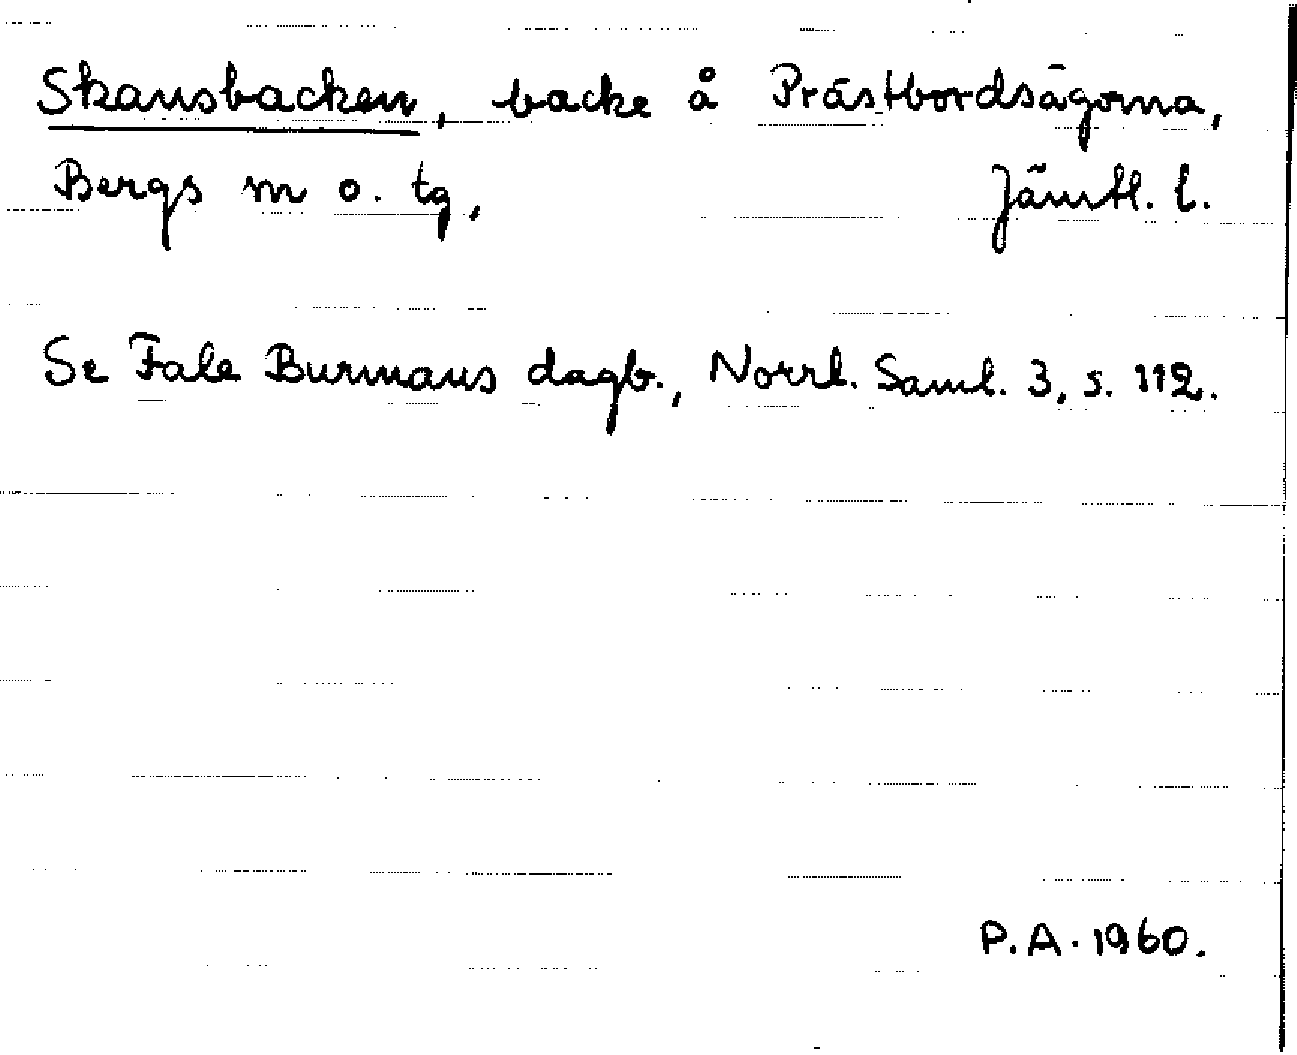 Skansbacken, backe å Prästbordsägorna,
Bergs sn o. tg, Jämtl. l.
Se Fale Burmans dagb., Norrl. Saml. 3, s. 112.
P.A. 1960.